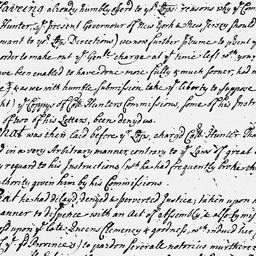 Haveing already humbly offerd to yor Ldps reasons why ye Com
Hunter, ye present Governour of New York & New Jersey should
uant to yor Ldps Directions) we now further p'sume to p'sent y
order to make out ye Genll charge at ye time left wth your
ve been enabled to have done more fully & much sooner, had n
& was with humble submission take ye liberty to suppose
ht) ye Copys of Coll Hunters Commissions, some of his Instru
of two of his Letters, been deny'd us.
That was then laid before yor Ldps, charg'd Coll Hunter Tha
d in a very Arbitrary manner, contrary to ye Laws of great
y regard to his Instructions (wch he had frequently broke th
thority given him by his Commissions.
That he had delay'd, denyed & perverted Justice; taken upon
anner to dispence with an Act of Assembly, & also by mis
d upon ye late Queens Clemency & goodness, wch induc'd her
(ye sd Province) to pardon severall notorius murtherers